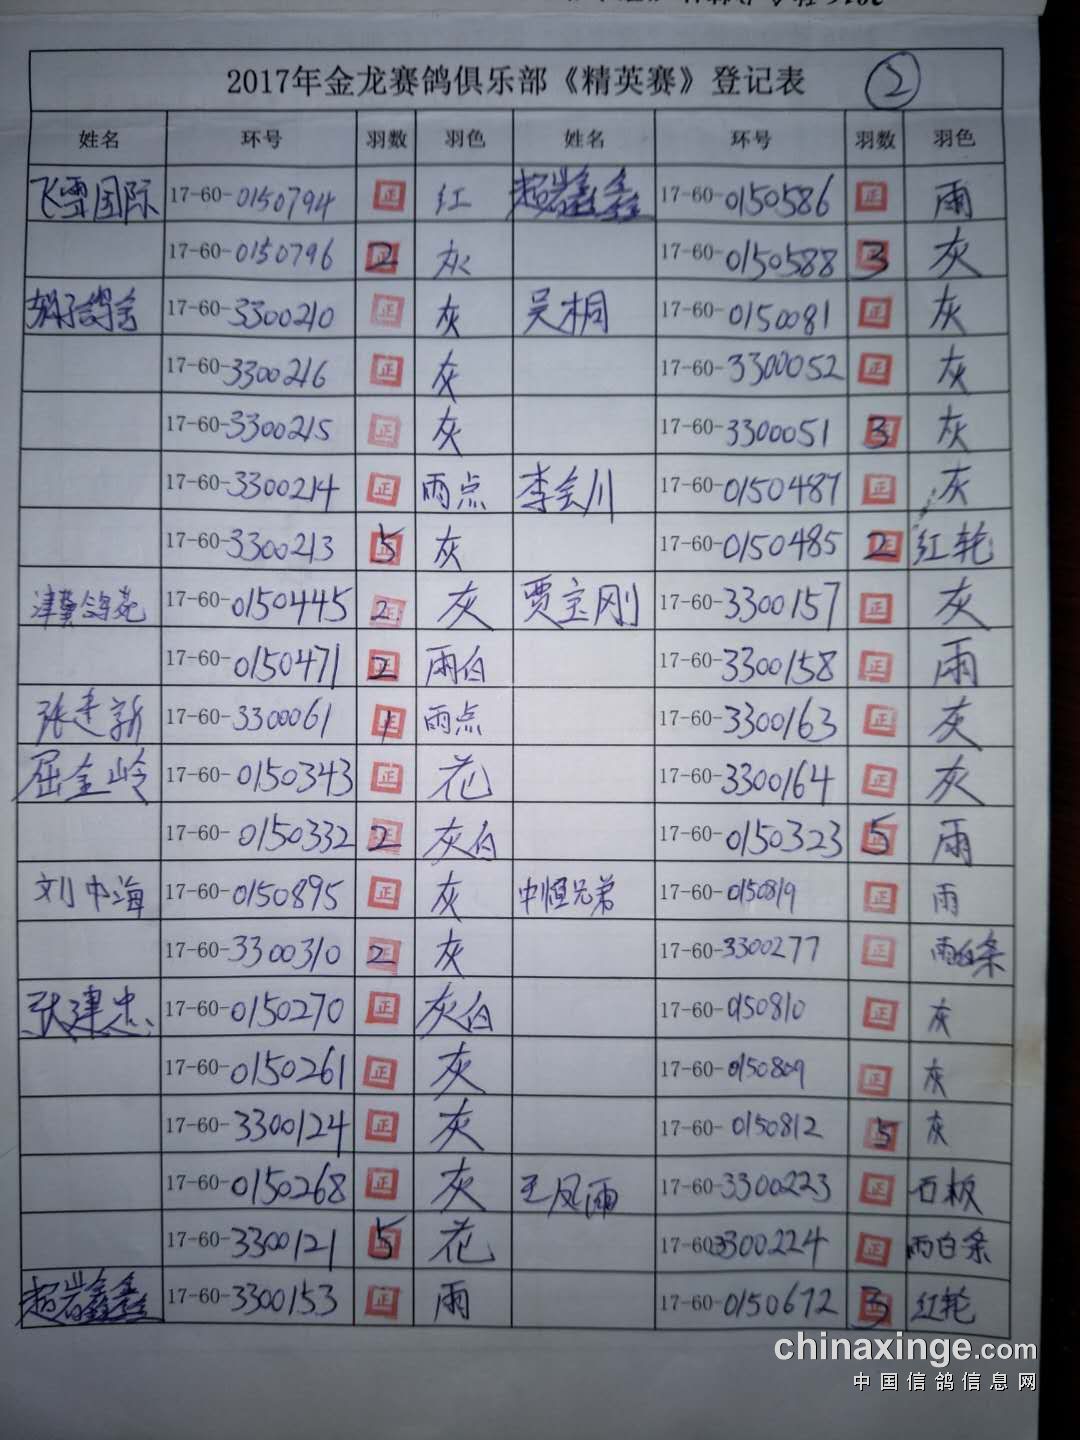 2017年金龙赛鸽俱乐部《精英赛》登记表 2
姓名 环号 羽数 羽色 姓名 环号 羽数 羽色
飞雪国际 17-60-0150794 正 红 超岩鑫鑫 17-60-0150586 正 雨
17-60-0150796 2 灰 17-60-0150588 3 灰
17-60-3300210 正 灰 吴桐 17-60-0150081 正 灰
17-60-3300216 正 灰 17-60-3300052 正 灰
17-60-3300215 正 灰 17-60-3300051 3 灰
17-60-3300214 正 雨点 李会川 17-60-0150487 正 灰
17-60-3300213 5 灰 17-60-0150485 2 红轮
津龚鸽苑 17-60-0150445 2 灰 贾宝刚 17-60-3300157 正 灰
17-60-0150471 2 雨白 17-60-3300158 正 雨
张建新 17-60-3300061 1 雨点 17-60-3300163 正 灰
屈金岭 17-60-0150343 正 花 17-60-3300164 正 灰
17-60-0150332 2 灰白 17-60-0150323 5 雨
刘中海 17-60-0150895 正 灰 中恒兄弟 17-60-0150819 正 雨
17-60-3300310 2 灰 17-60-3300277 正 雨白条
张建忠 17-60-0150270 正 灰白 17-60-0150810 正 灰
17-60-0150261 正 灰 17-60-0150809 正 灰
17-60-3300124 正 灰 17-60-0150812 5 灰
17-60-0150268 正 灰 王凤雨 17-60-3300223 正 石板
17-60-3300121 5 花 17-60-3300224 正 雨白条
超岩鑫鑫 17-60-3300153 正 雨 17-60-0150672 3 红轮
chinaxinge.com
中国信鸽信息网